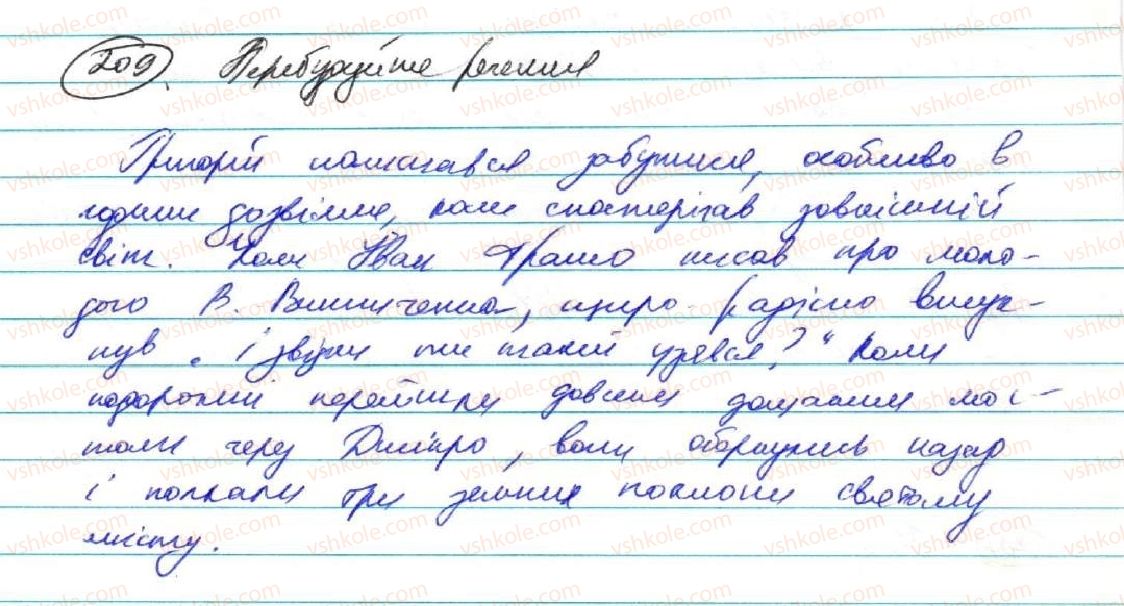 209. Перебудуйте речення
Григорій намагався забутися, особливо в
години дозвілля, коли спостерігав зовнішній
світ. Коли Іван Франко писав про моло-
дого В. Винниченка, щиро-радісно вигук-
нув „і звідки ти такий узявся?“ Коли
подорожні перейшли довгим дощаним мос-
том через Дніпро, вони обернулись назад
і поклали три земних поклони святому
місту.